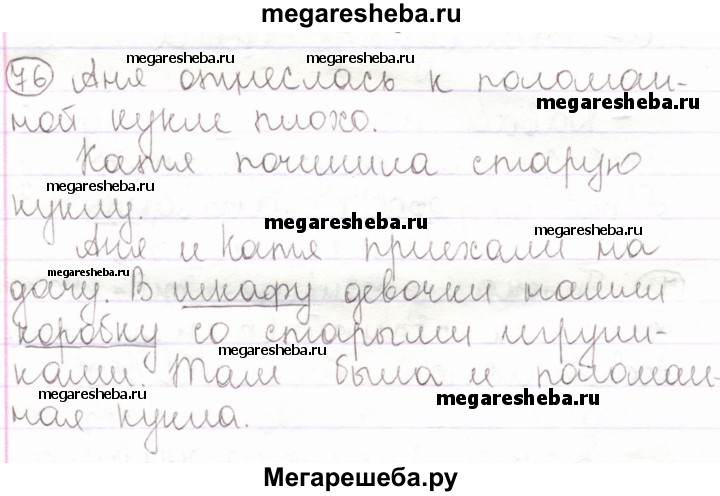 megaresheba.ru
megaresheba.ru megaresheba.ru
76 Аня отнеслась к поломан-
megaresheba.ru
ной кукле плохо.
Катя починила старую
megaresheba.ru
куклу. megaresheba.ru megaresheba.ru
Аня и Катя приехали на
megaresheba.ru
дачу. В шкафу девочки нашли
коробку со старыми игруш-
megaresheba.ru
ками. Там была и поломан-
megaresheba.ru megaresheba.ru
ная кукла.
Мегарешеба.ру